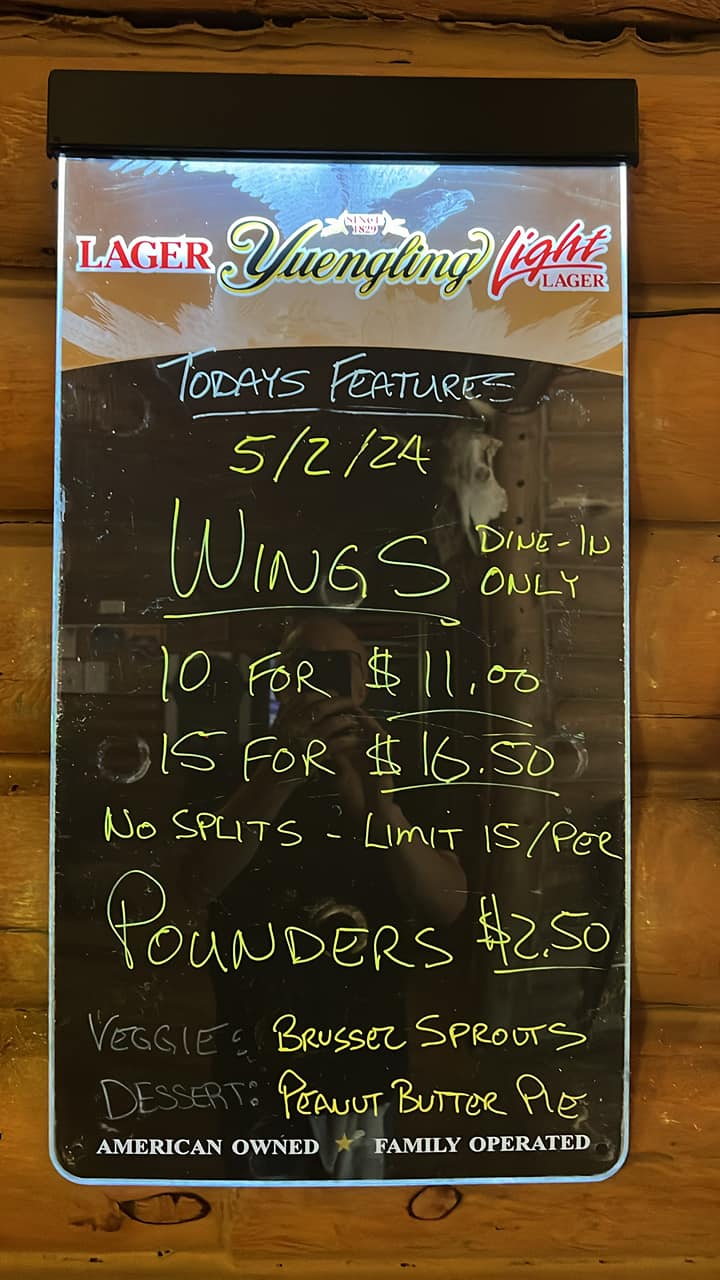 SINCE 1829
LAGER Yuengling Light LAGER
TODAYS FEATURES
5/2/24
WINGS DINE-IN ONLY
10 FOR $11.00
15 FOR $16.50
NO SPLITS - LIMIT 15/PER
POUNDERS $2.50
VEGGIE: BRUSSEL SPROUTS
DESSERT: PEANUT BUTTER PIE
AMERICAN OWNED ★ FAMILY OPERATED